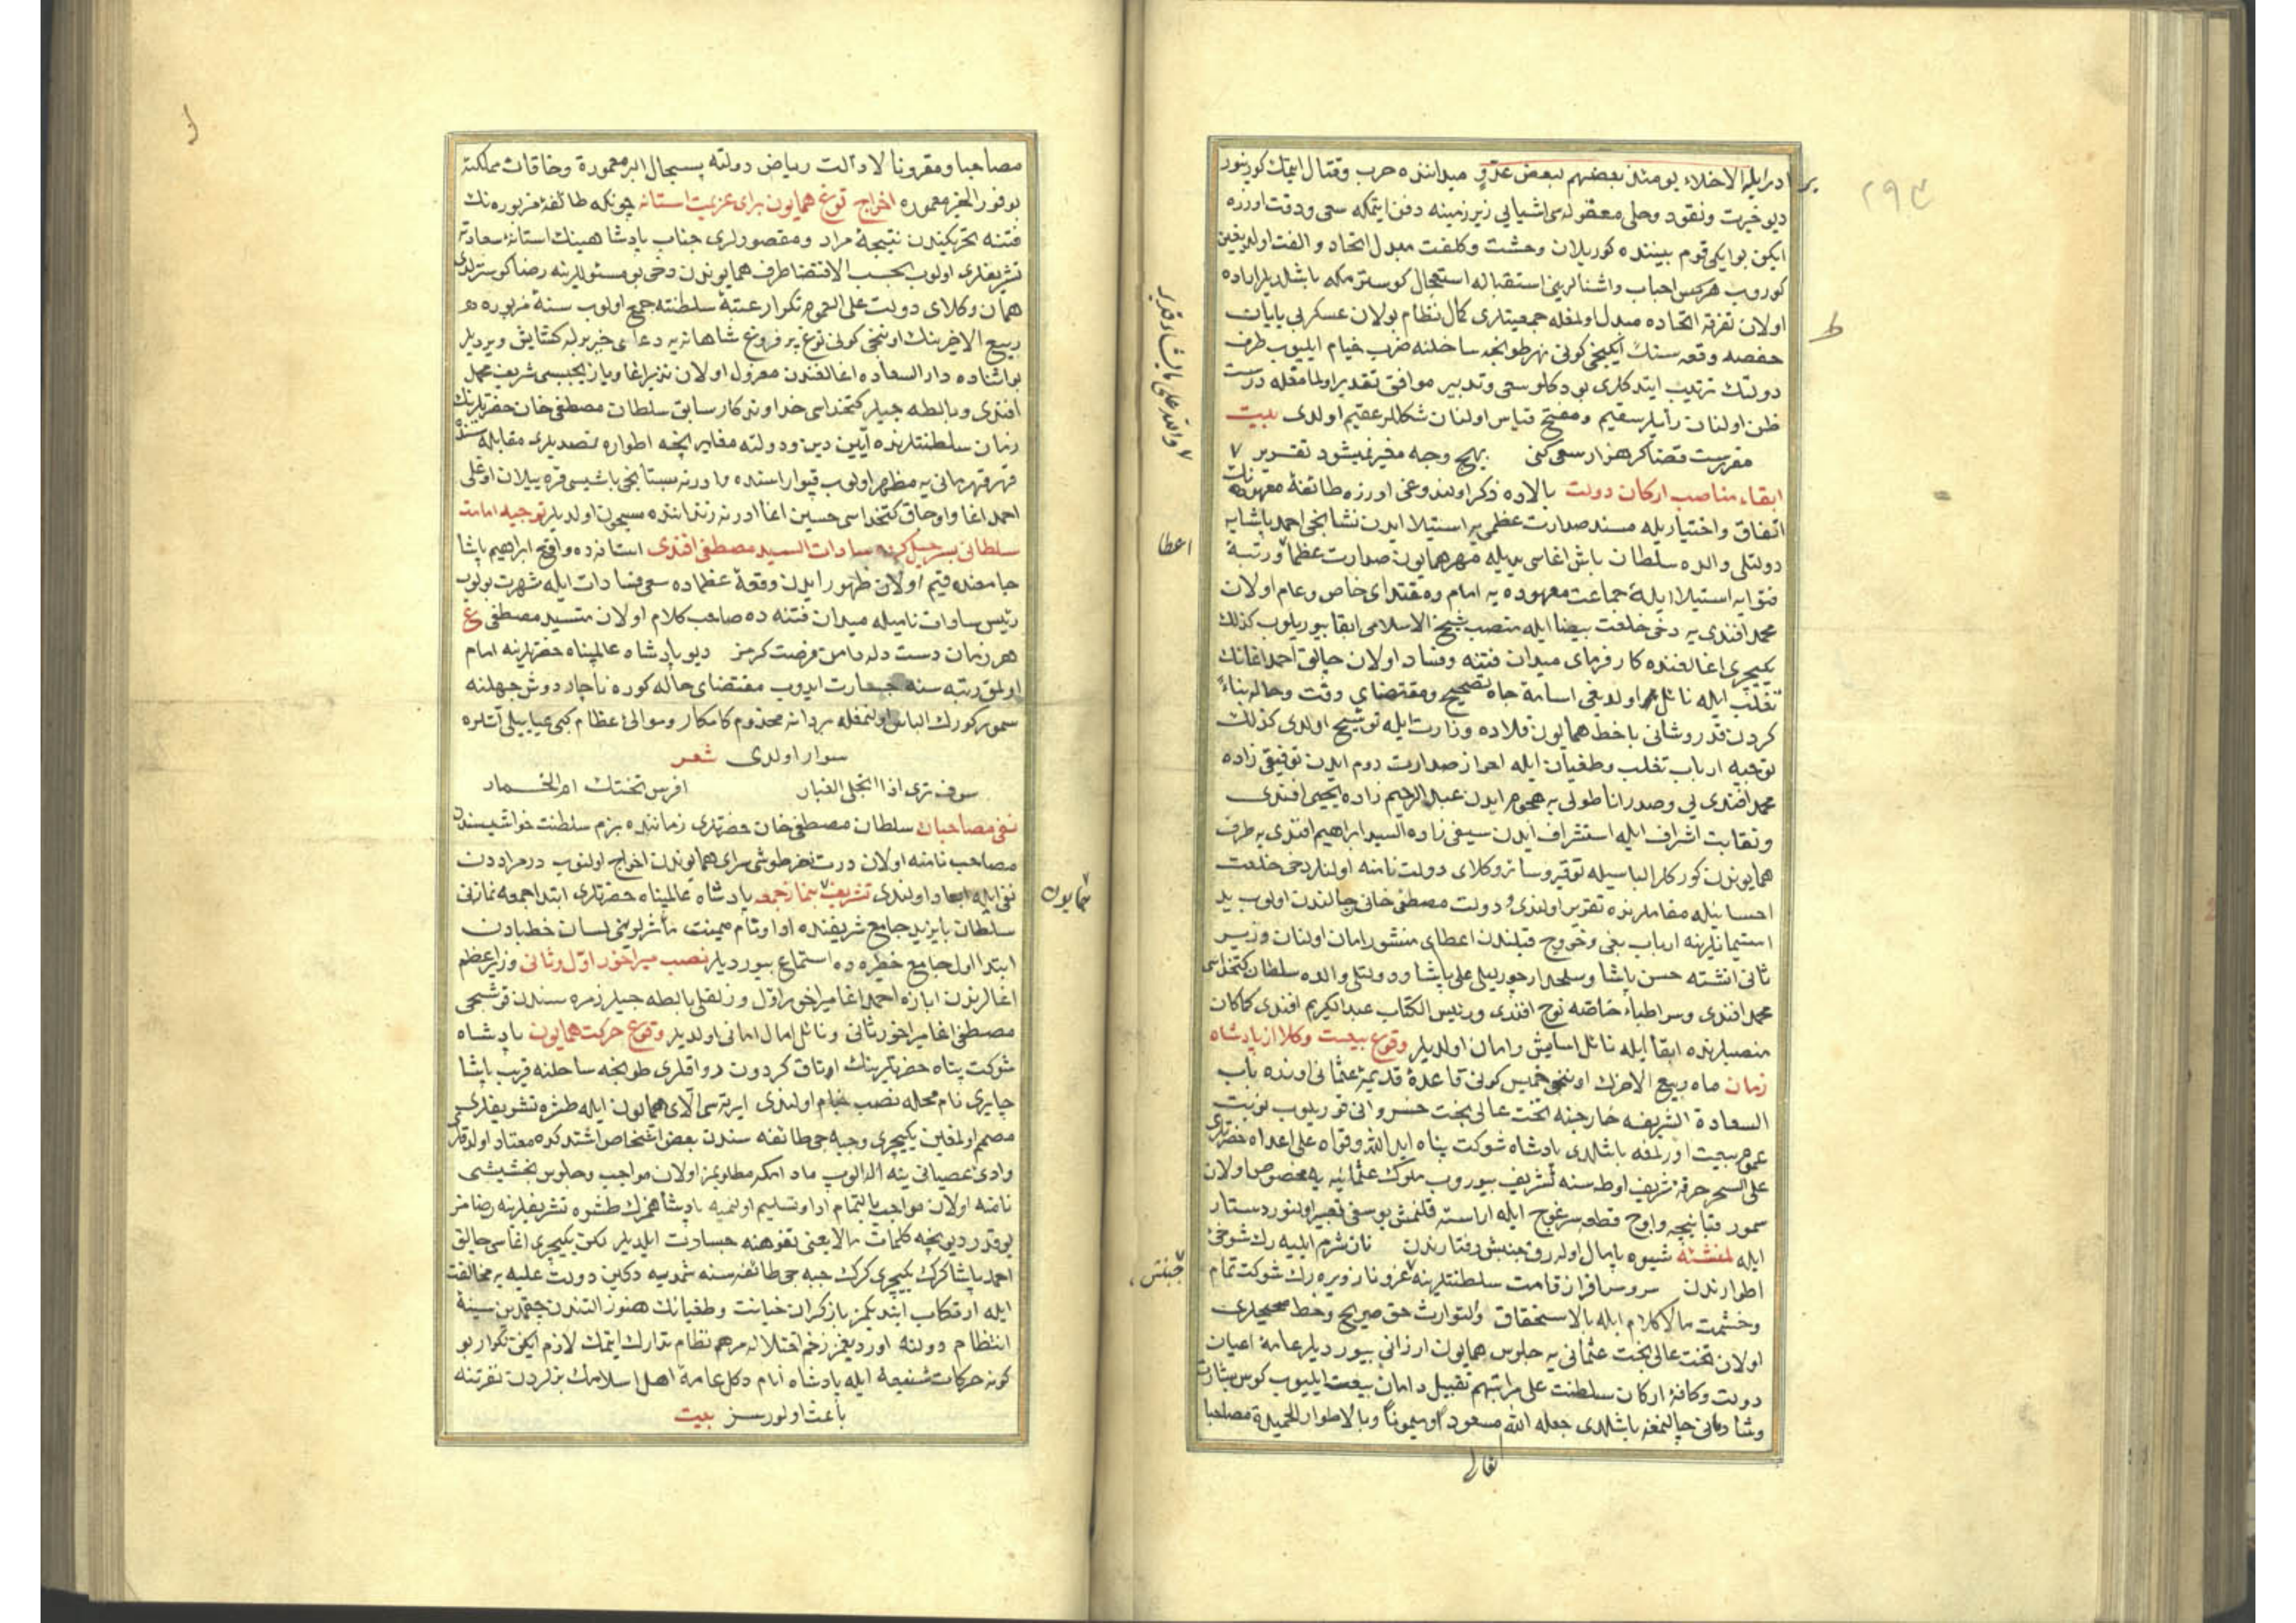 ٢٩٣
بر
ادرايله الاخلاء يومئذ بعضهم لبعض عدو ميدانده حرب وقتال ايتمك كورينور
ديو خيرت ونقود وحلى معقوله سى اشيايى زير زمينه دفن ايتمكه سعى ودقت اوزره
ايكن بو ايكى قوم بيننده كوريلان وحشت وكلفت مبدل اتحاد والفت اولديغين
كوروب هركس احباب واشنالرينى استقباله استعجال كوسترمكه باشلديلر اراده
اولان تفرقه اتحاده مبدل اولمغله جمعيتلرى كمال نظام بولان عسكر بى پايان
حفصه وقعه سنك ايكنجى كونى نهر طونجه ساحلنه ضرب خيام ايليوب طرف
دولتك ترتيب ايتدكلرى بو دكلو سعى وتدبير موافق تقدير اولمامغله درست
ظن اولنان رأيلر سقيم ومفتح قياس اولنان شكللر عقيم اولدى بيت
مقررست قضا كر هزار سعى كنى بهيچ وجه مغير نميشود تقدير
والله على ما يشاء قدير
ابقاء مناصب اركان دولت بالاده ذكر اولندوغى اوزره طائفهٔ معهوده نك
اتفاق واختياريله مسند صدارت عظمى يه استيلا ايدن نشانجى احمد پاشايه
دولتلى والده سلطان باش اغاسى يديله مهر همايون صدارت عظما ورتبهٔ
اعطا
فتوايه استيلا ايله جماعت معهوده يه امام ومقتداى خاص وعام اولان
محمد افندى يه دخى خلعت بيضا ايله منصب شيخ الاسلامى ابقا بيوريلوب كذلك
يكيچرى اغالغنده كارفرماى ميدان فتنه وفساد اولان چالق احمد اغانك
تغلب ايله نائل اولديغى اسامهٔ جاه تصحيح ومقتضاى وقت وحاله بناءً
كردن قدر وشانى با خط همايون قلاده وزارت ايله توشيح اولدى كذلك
توجيه ارباب تغلب وطغيان ايله احراز صدارت روم ايدن توفيقى زاده
محمد افندى يى وصدر اناطولى يه هجوم ايدن عبدالرحيم زاده يحيى افندى
ونقابت اشراف ايله استشراف ايدن سيفى زاده السيد ابراهيم افندى يه طرف
همايوندن كوركلر الباسيله توقير وسائر وكلاى دولت نامنه اولنلر دخى خلعت
احسانيله مقاملرنده تقرير اولندى ودولت مصطفى خانى رجالندن اولوب يد
استيمانلرينه ارباب بغى وخروج قبلندن اعطاى منشور امان اولنان وزير
ثانى انشته حسن پاشا وسلحدار چورليلى على پاشا ودولتلى والده سلطان كتخداسى
محمد افندى وسر اطباء خاصه نوح افندى ورئيس الكتاب عبدالكريم افندى كماكان
منصبلرنده ابقا ايله نائل اسايش وامان اولديلر وقوع بيعت وكلا از پادشاه
زمان ماه ربيع الاخرك اوننجى خميس كونى قاعدهٔ قديمهٔ عثمانى اوزره باب
السعادة الشريفه خارجنه تخت عالى بخت خسروانى قوريلوب نوبت
عموم بيعت اورلمغه باشلدى پادشاه شوكت پناه ايد الله وقواه على اعداه حضرتلرى
على السحر خرقهٔ شريف اوطه سنه تشريف بيوروب ملوك عثمانيه يه مخصوص اولان
سمور قپانيچه واوچ قطعه سرغوج ايله اراسته قلنمش يوسفى تعبير اولنور دستار
ايله لمنشئه شيوه پامال اولور جنبش رفتارندن نان شرم ايليه رك شوخى
جنبش
اطوارندن سرو سرافراز قامت سلطنتلرينه عز وناز ويره رك شوكت تمام
وخشمت مالاكلام ايله بالاستحقاق والتوارث حق صريح وحظ صحيحلرى
اولان تخت عالى بخت عثمانى يه جلوس همايون ارزانى بيورديلر عامهٔ اعيان
دولت وكافهٔ اركان سلطنت على مراتبهم تقبيل دامان بيعت ايليوب كوس بشارت
وشادمانى چالنمغه باشلدى جعله الله مسعودا وميمونا وبالاطوار الحميدة مصاحبا
تعالى
مصاحبا ومقرونا لا زالت رياض دولته بسجال البر معمورة وخاقات مملكته
بوفور الخير مغموره اخراج توغ همايون براى عزيمت استانه چونكه طائفهٔ مزبوره نك
فتنه تحريكندن نتيجهٔ مراد ومقصودلرى جناب پادشاهينك استانهٔ سعادته
تشريفلرى اولوب بحسب الاقتضا طرف همايوندن دخى بو مسئوللرينه رضا كوسترلدى
همان وكلاى دولت على العموم تكرار عتبهٔ سلطنته جمع اولوب سنهٔ مزبوره
ربيع الاخرينك اوننجى كونى توغ پر فروغ شاهانه يه دعاى خير برله كشايش ويرديلر
بو اثناده دار السعاده اغالغندن معزول اولان نذير اغا ويازيجيسى شريف محمد
افندى وبالطه جيلر كتخداسى خداوندكار سابق سلطان مصطفى خان حضرتلرينك
زمان سلطنتلرنده آيين دين ودولته مغاير نيچه اطواره تصديلرى مقابله سنده
قهر قهرمانى يه مظهر اولوب قپو اراسنده وادرنه بستانجى باشيسى قره ييلان اوغلى
احمد اغا واوجاق كتخداسى حسين اغا ادرنه زنداننده مسجون اولديلر توجيه امامت
سلطانى بسرخيل كروه سادات السيد مصطفى افندى استانه ده واقع ابراهيم پاشا
جامعنده قيم اولان ظهور ايدن وقعهٔ عظماده سعى فسادات ايله شهرت بولوب
رئيس سادات ناميله ميدان فتنه ده صاحب كلام اولان متسيد مصطفى ع
هر زمان دست دله دامن فرصت كرمز ديو پادشاه عالمپناه حضرتلرينه امام
اولمق رتبه سنه جسارت ايدوب مقتضاى حاله كوره ناچار دوش جهلنه
سمور كورك الباس اولنمغله مردانه مخدوم كامكار وموالئ عظام كبى عبايلى آتلره
سوار اولدى شعر
سوف ترى اذا انجلى الغبار افرس تحتك ام الحمار
نفى مصاحبان سلطان مصطفى خان حضرتلرى زماننده بزم سلطنت حواشيسندن
مصاحب نامنه اولان درت نفر طوشى سراى همايوندن اخراج اولنوب درمراددن
نفى ايله ابعاد اولندى تشريف بنماز جمعه پادشاه عالمپناه حضرتلرى ابتدا جمعه نمازنى
همايون
سلطان بايزيد جامع شريفنده ادا وتام ميمنت مأثرلرينى لسان خطبادن
ابتدا اول جامع خطيره ده استماع بيورديلر نصب ميراخور اول وثانى وزير اعظم
اغالرندن اباظه احمد اغا ميراخور اول وزلفلى بالطه جيلر زمره سندن قوشجى
مصطفى اغا ميراخور ثانى ونائل امال امانى اولديلر وقوع حركت همايون پادشاه
شوكت پناه حضرتلرينك اوتاق كردون رواقلرى طونجه ساحلنه قريب پاشا
چايرى نام محله نصب خيام اولندى ايرته سى آلاى همايون ايله طشره تشريفلرى
مصمم اولمغين يكيچرى وجبه جى طائفه سندن بعض اشخاص اشتدكده معتاد اولدقلرى
وادئ عصيانى ينه اله الوب مادامكه مطلوبمز اولان مواجب وجلوس بخششى
نامنه اولان مواجب بالتمام ادا وتسليم اولنميه پادشاهمزك طشره تشريفلرينه رضامز
يوقدر ديو نيچه كلمات مالايعنى تفوهنه جسارت ايلديلر لكن يكيچرى اغاسى چالق
احمد پاشا كرك يكيچرى كرك جبه جى طائفه سنه شمديه دكين دولت عليه يه مخالفت
ايله ارتكاب ايتديكمز بازكران خيانت وطغيانك هنوز التندن چقمدين سينهٔ
انتظام دولته اورديغمز زخم اختلاله مرهم نظام تدارك ايتمك لازم ايكن تكرار بو
كونه حركات شنيعه ايله پادشاه انام دكل عامهٔ اهل اسلامك بزلردن نفرتنه
باعث اولورسز بيت